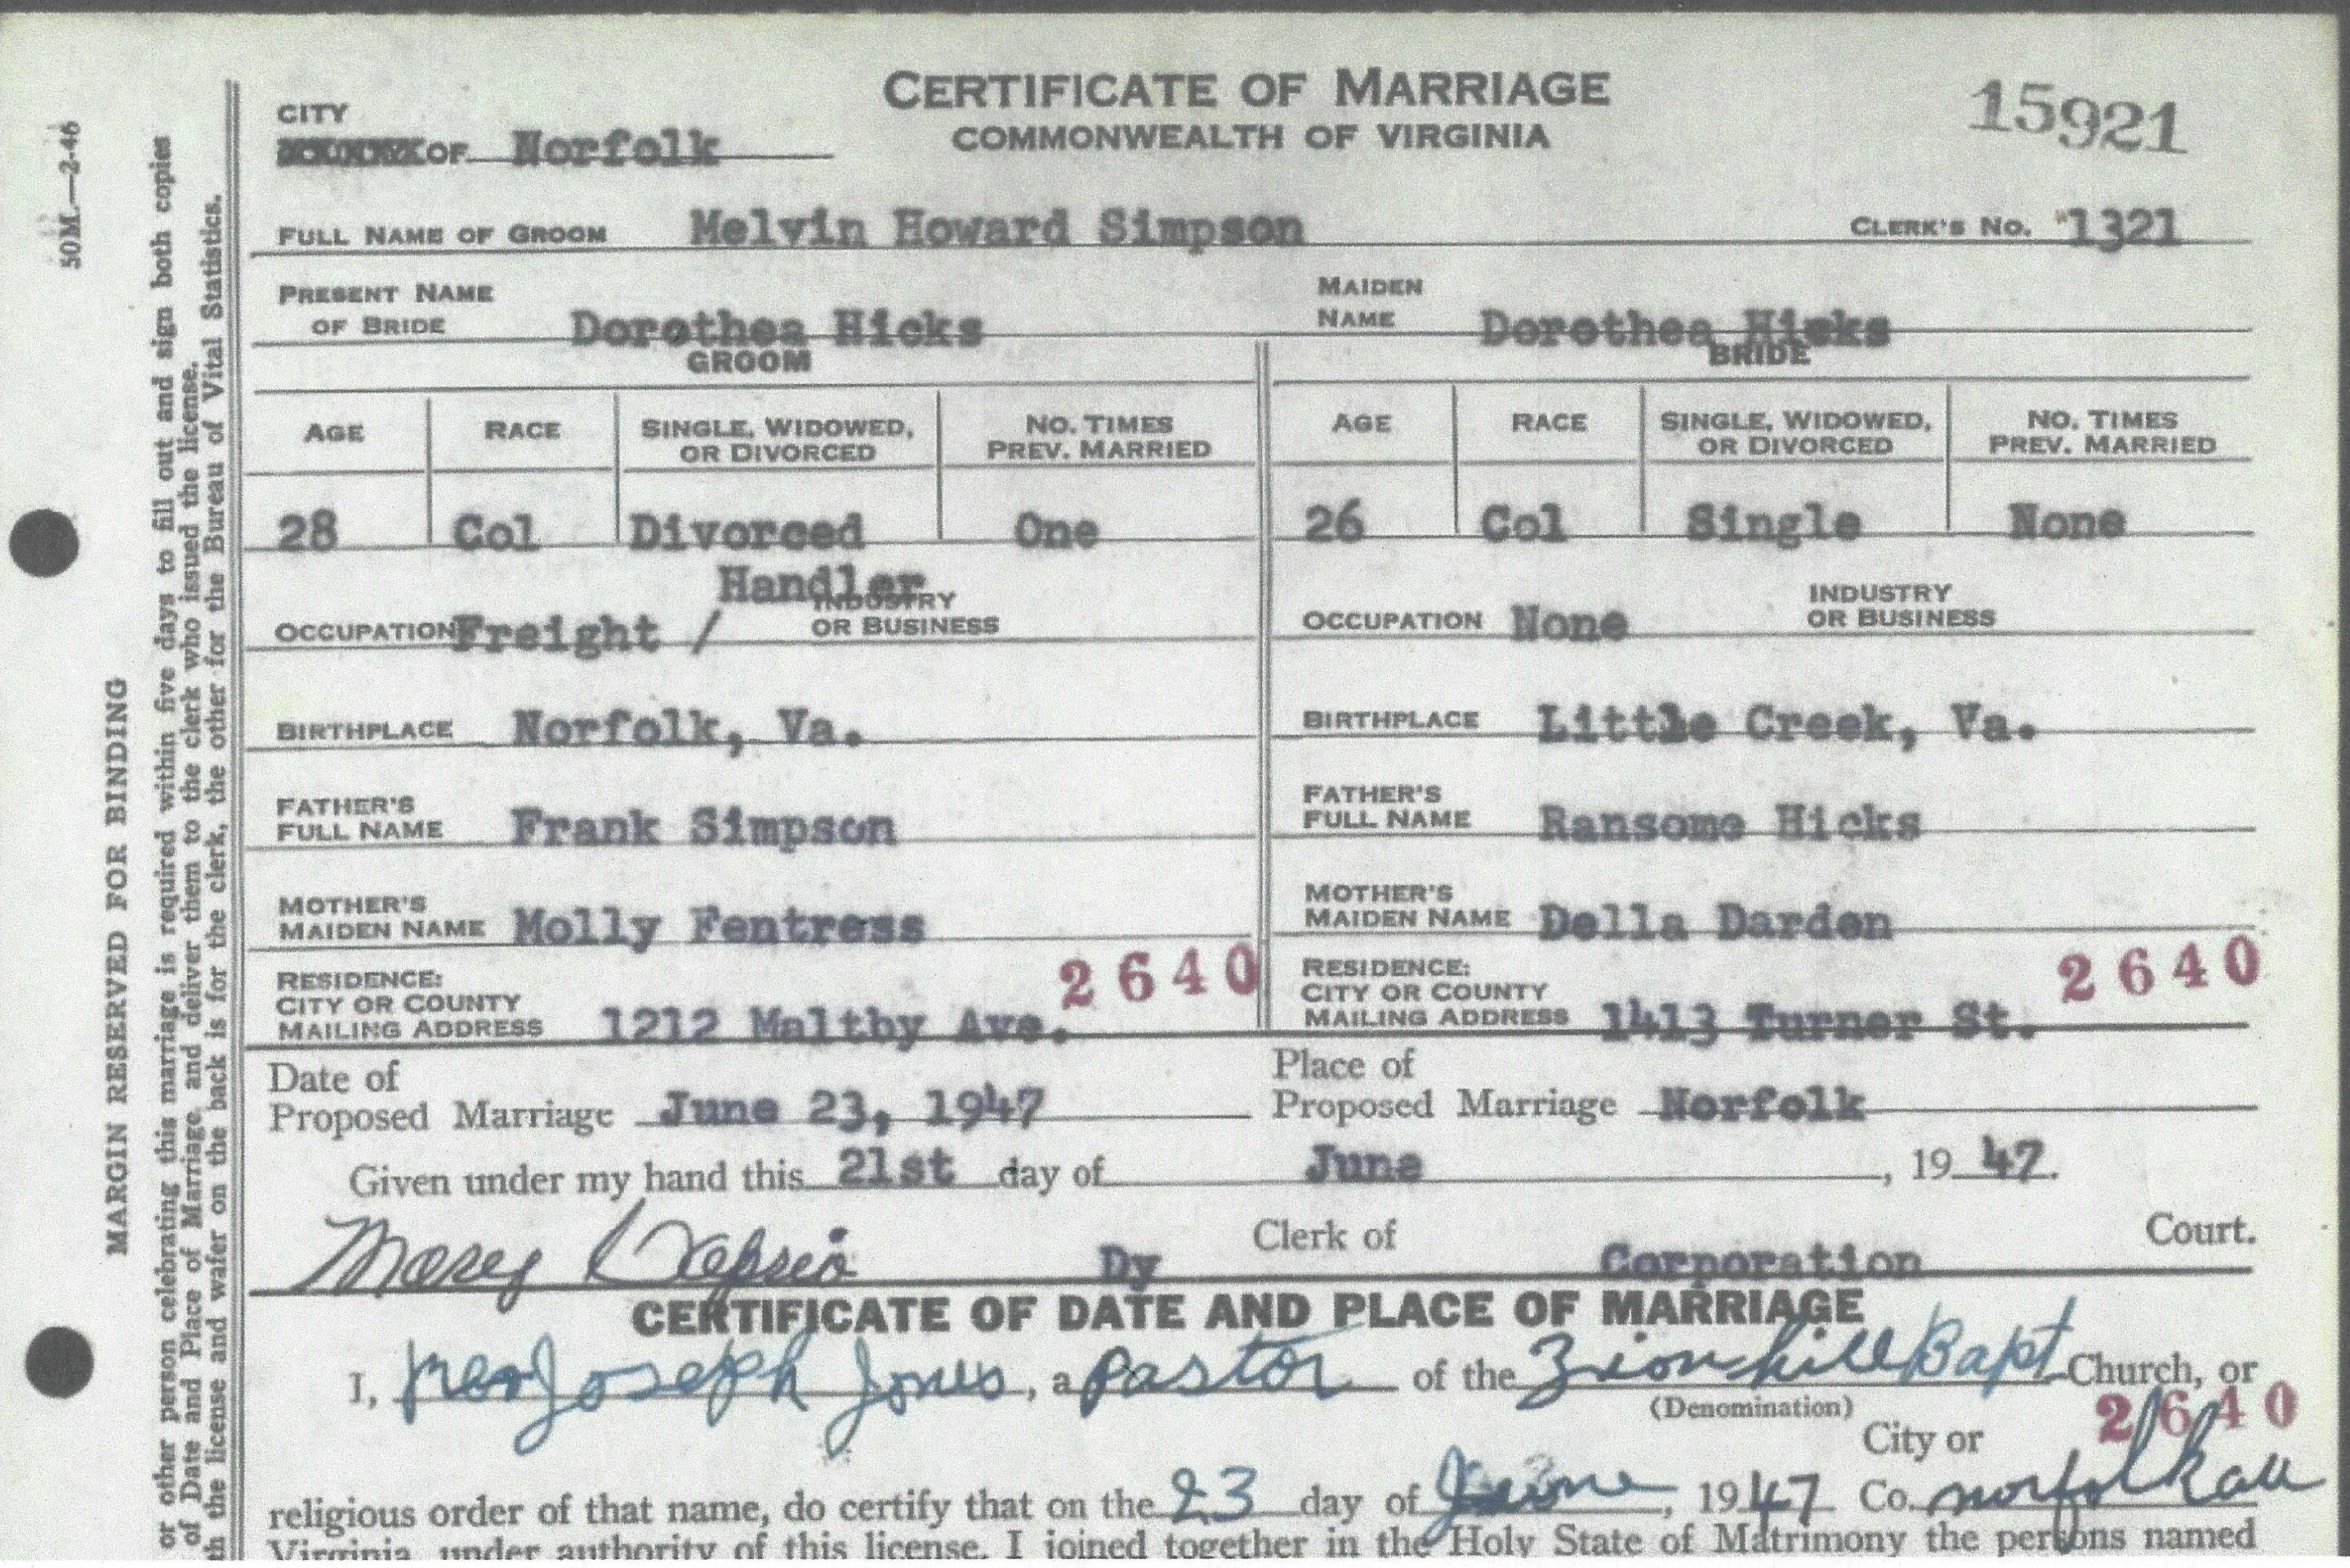 CERTIFICATE OF MARRIAGE
COMMONWEALTH OF VIRGINIA
15921
CITY
OF Norfolk
FULL NAME OF GROOM Melvin Howard Simpson CLERK'S No. 1321
PRESENT NAME OF BRIDE Dorothea Hicks MAIDEN NAME Dorothea Hicks
GROOM BRIDE
AGE RACE SINGLE, WIDOWED, OR DIVORCED NO. TIMES PREV. MARRIED AGE RACE SINGLE, WIDOWED, OR DIVORCED NO. TIMES PREV. MARRIED
28 Col Divorced One 26 Col Single None
OCCUPATION Freight / Handler INDUSTRY OR BUSINESS OCCUPATION None INDUSTRY OR BUSINESS
BIRTHPLACE Norfolk, Va. BIRTHPLACE Little Creek, Va.
FATHER'S FULL NAME Frank Simpson FATHER'S FULL NAME Ransome Hicks
MOTHER'S MAIDEN NAME Molly Fentress MOTHER'S MAIDEN NAME Della Darden
2640 2640
RESIDENCE: CITY OR COUNTY MAILING ADDRESS 1212 Maltby Ave. RESIDENCE: CITY OR COUNTY MAILING ADDRESS 1413 Turner St.
Date of Proposed Marriage June 23, 1947 Place of Proposed Marriage Norfolk
Given under my hand this 21st day of June, 19 47.
Dy Clerk of Corporation Court.
CERTIFICATE OF DATE AND PLACE OF MARRIAGE
I, Rev Joseph Jones, a pastor of the Zion hill Bapt Church, or
(Denomination)
2640
City or
religious order of that name, do certify that on the 23 day of June, 1947 Co. norfolk
Virginia, under authority of this license, I joined together in the Holy State of Matrimony the persons named
50M.—2-46
MARGIN RESERVED FOR BINDING
or other person celebrating this marriage is required within five days to fill out and sign both copies
of Date and Place of Marriage, and deliver them to the clerk who issued the license.
th the license and wafer on the back is for the clerk, the other for the Bureau of Vital Statistics.